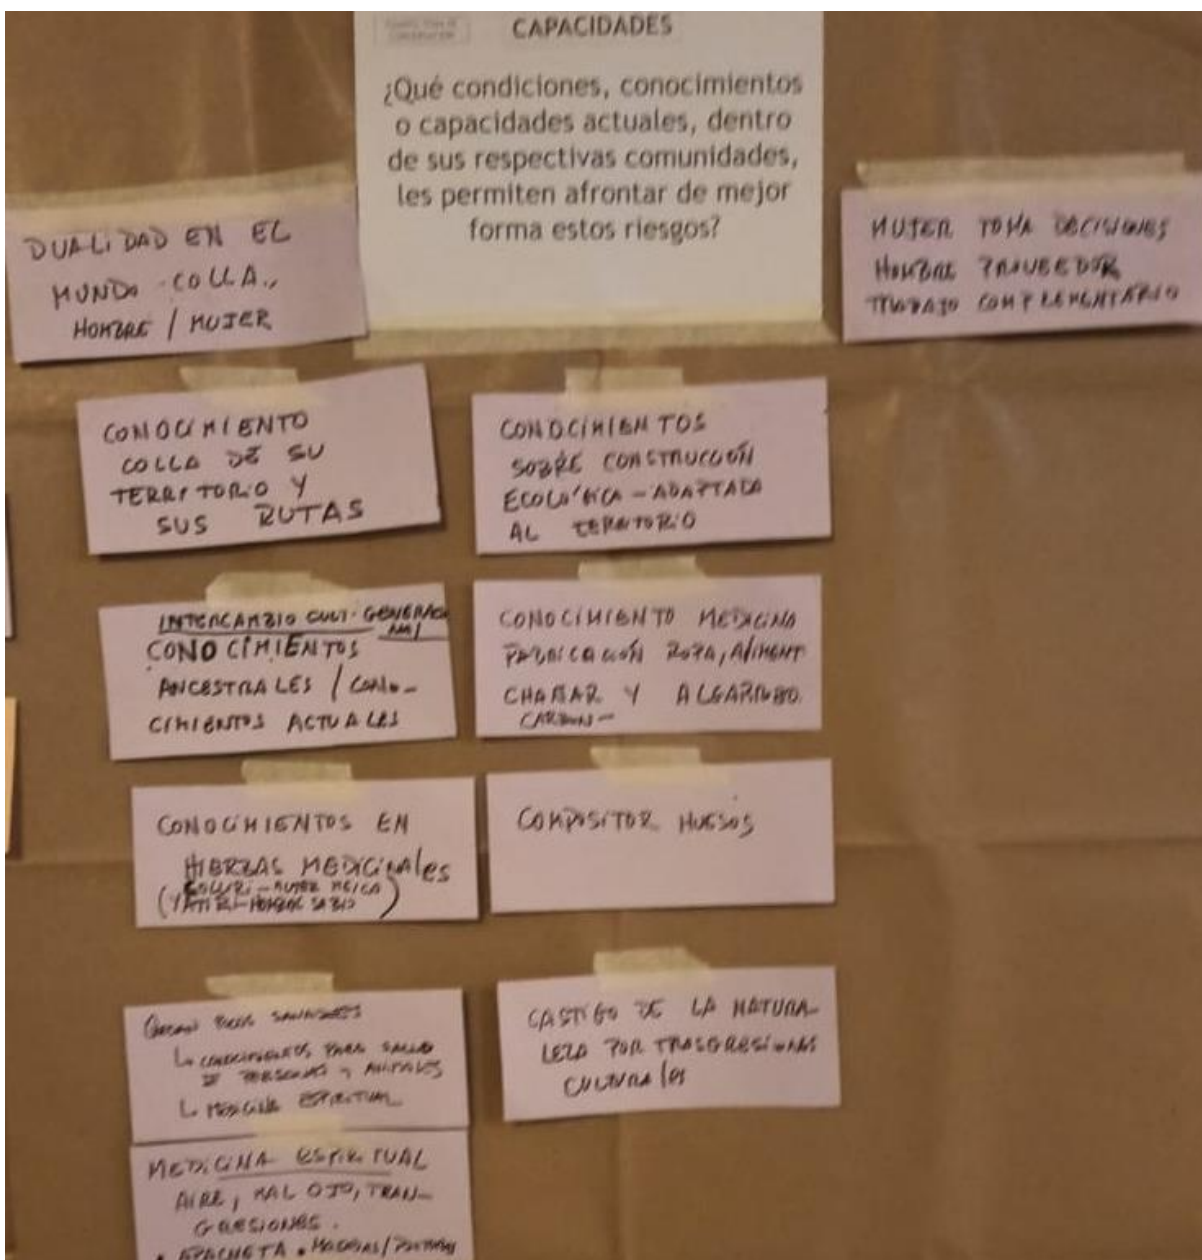 CAPACIDADES
¿Qué condiciones, conocimientos
o capacidades actuales, dentro
de sus respectivas comunidades,
les permiten afrontar de mejor
forma estos riesgos?
DUALIDAD EN EL
MUNDO COLLA..
HOMBRE / MUJER
MUJER TOMA DECISIONES
HOMBRE PROVEEDOR
TRABAJO COMPLEMENTARIO
CONOCIMIENTO
COLLA DE SU
TERRITORIO Y
SUS RUTAS
CONOCIMIENTOS
SOBRE CONSTRUCCIÓN
ECOLÓGICA - ADAPTADA
AL TERRITORIO
INTERCAMBIO CULT. GENERACIONAL
CONOCIMIENTOS
ANCESTRALES / CONO-
CIMIENTOS ACTUALES
CONOCIMIENTO MEDICINA
FABRICACIÓN ROPA, ALIMENT
CHAÑAR Y ALGARROBO.
CARBON -
CONOCIMIENTOS EN
HIERBAS MEDICINALES
- MUJER
(YATIRI - HOMBRE SABIO)
COMPOSITOR HUESOS
QUEDAN POCOS SANADORES
CONOCIMIENTOS PARA SALUD
DE PERSONAS Y ANIMALES
MEDICINA ESPIRITUAL
CASTIGO DE LA NATURA-
LEZA POR TRASGRESIONES
CULTURALES
MEDICINA ESPIRITUAL
AIRE, MAL OJO, TRAN-
GRESIONES.
• APACHETA •